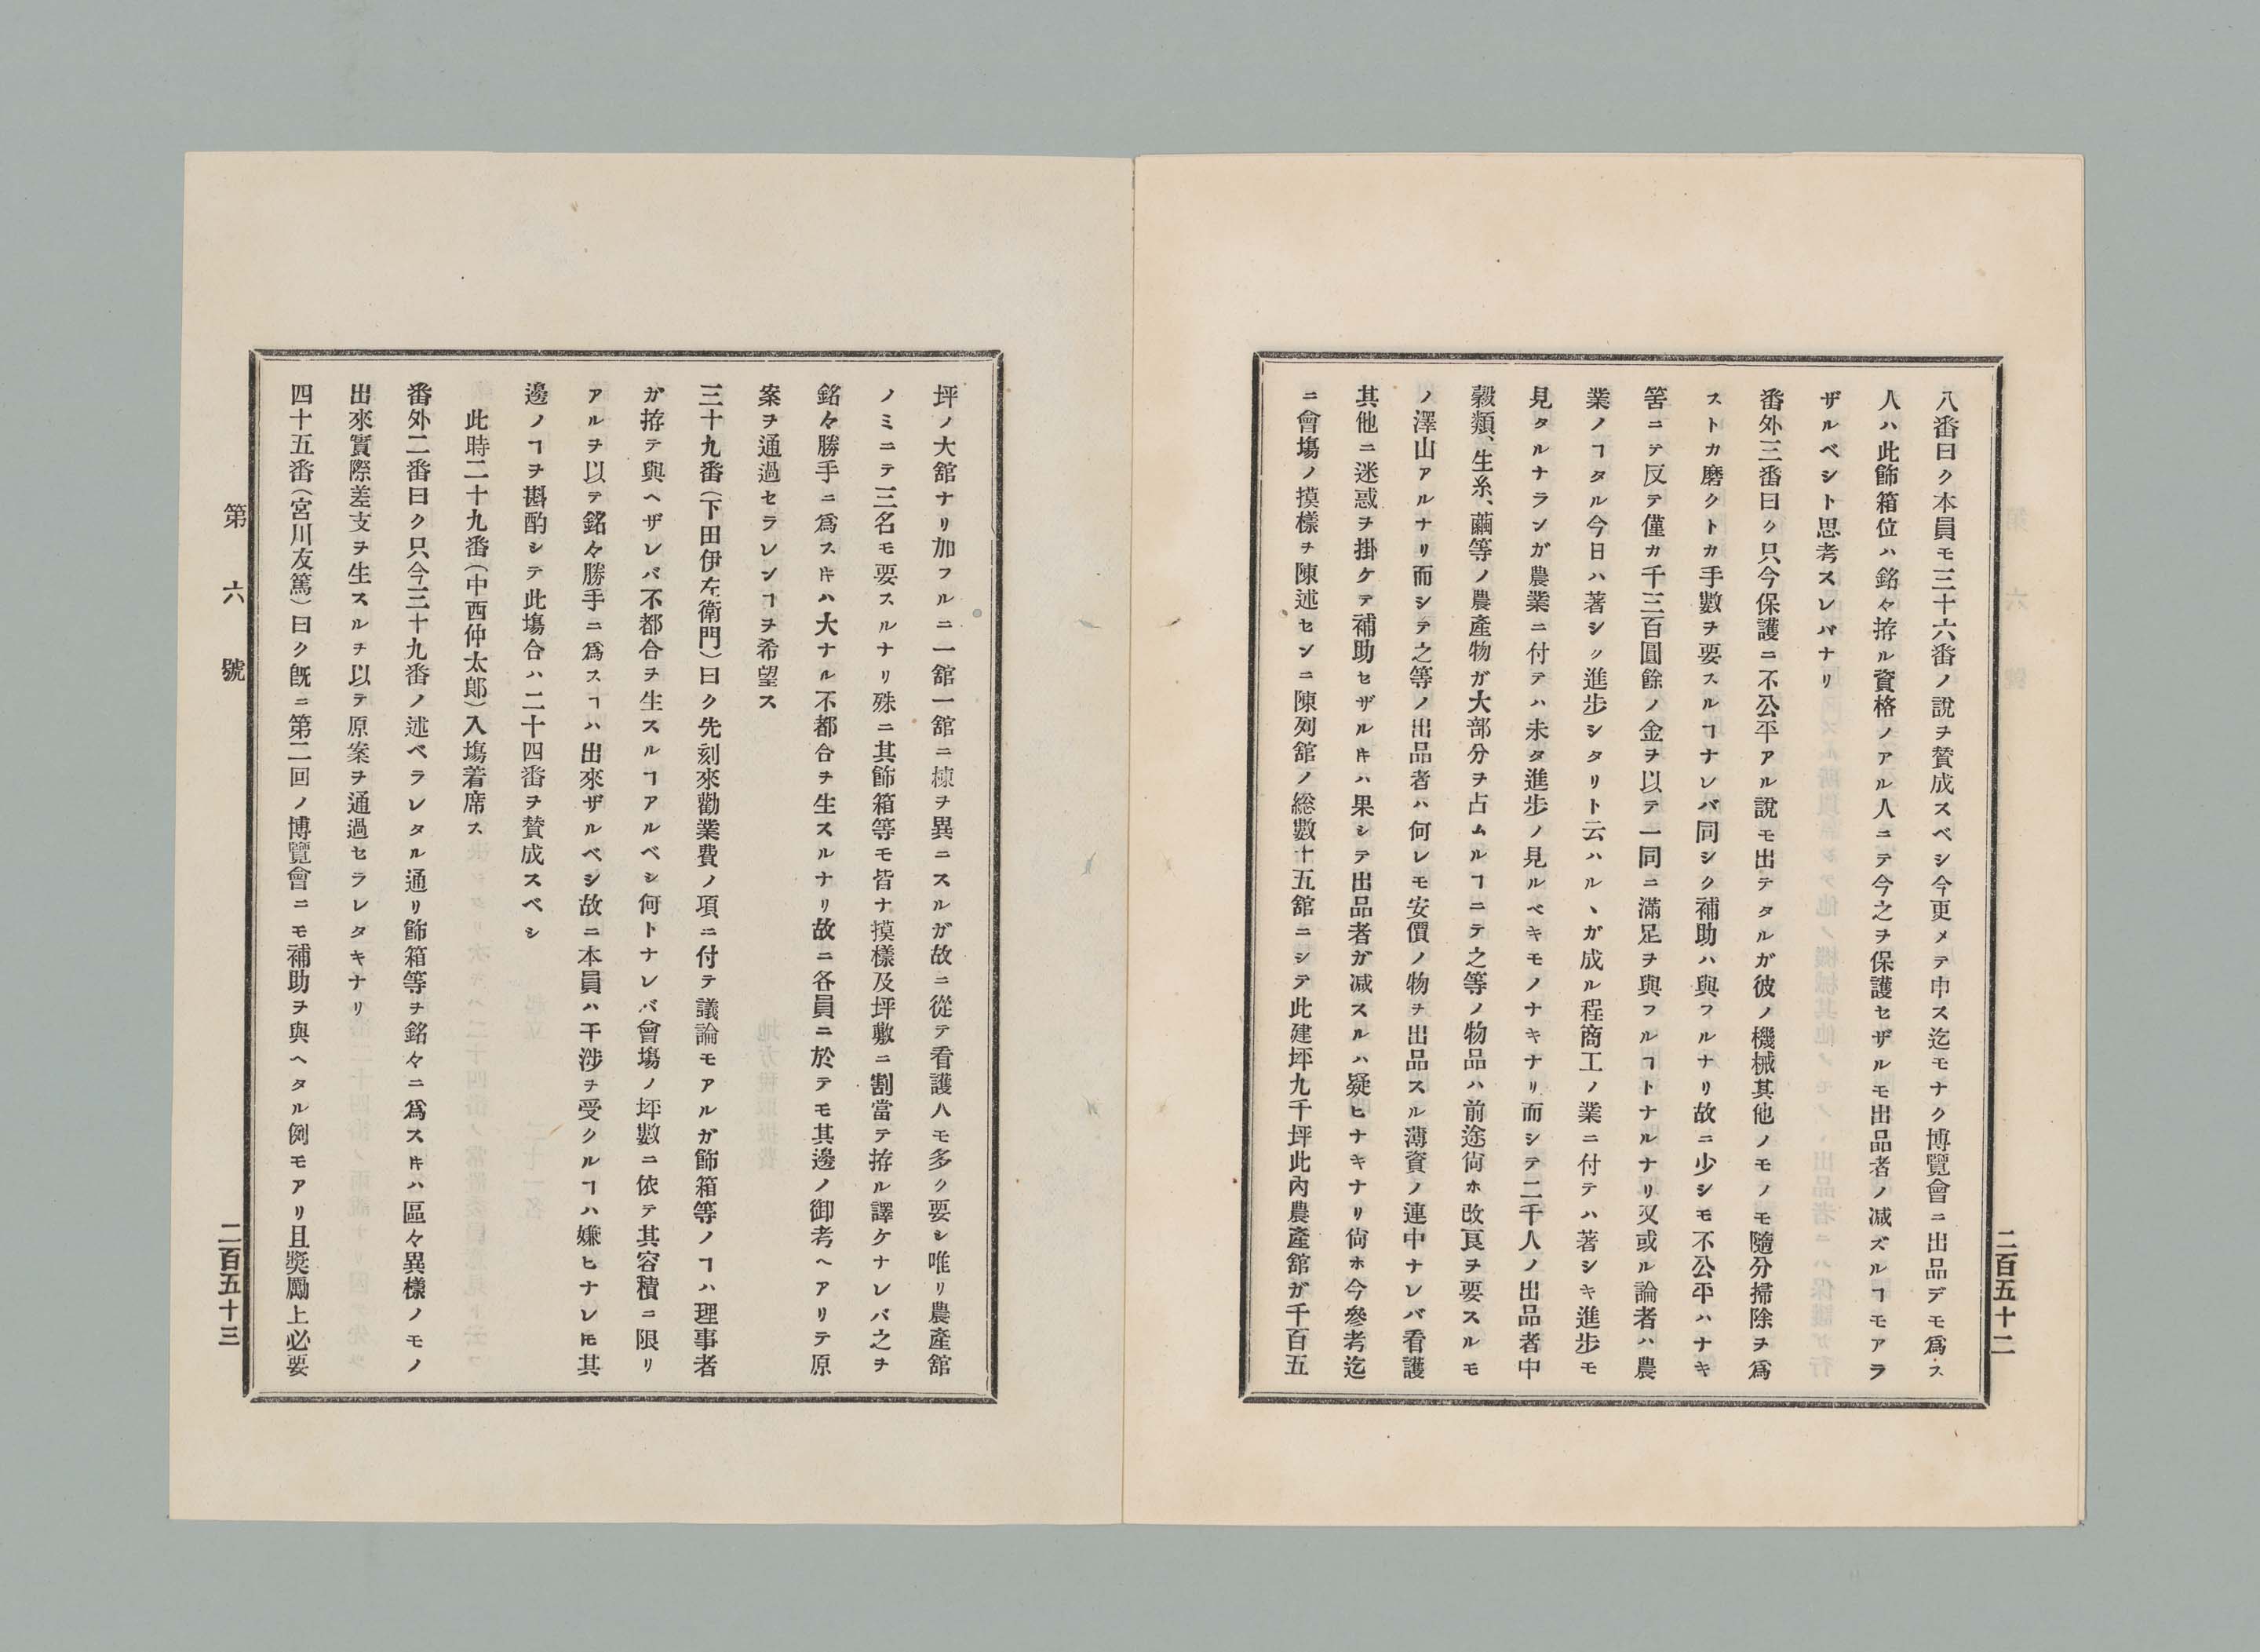 八番曰ク本員モ三十六番ノ說ヲ賛成スベシ今更メテ申ス迄モナク博覽會ニ出品デモ爲ス
人ハ此飾箱位ハ銘々拵ル資格ノアル人ニテ今之ヲ保護セザルモ出品者ノ减ズルヿモアラ
ザルベシト思考スレバナリ
番外三番曰ク只今保護ニ不公平アル說モ出テタルガ彼ノ機械其他ノモノモ隨分掃除ヲ爲
ストカ磨クトカ手數ヲ要スルヿナレバ同シク補助ハ與フルナリ故ニ少シモ不公平ハナキ
筈ニテ反テ僅カ千三百圓餘ノ金ヲ以テ一同ニ滿足ヲ與フルヿトナルナリ又或ル論者ハ農
業ノヿタル今日ハ著シク進步シタリト云ハルヽガ成ル程商工ノ業ニ付テハ著シキ進步モ
見タルナランガ農業ニ付テハ未タ進步ノ見ルベキモノナキナリ而シテ二千人ノ出品者中
穀類、生糸、繭等ノ農產物ガ大部分ヲ占ムルヿニテ之等ノ物品ハ前途尙ホ改良ヲ要スルモ
ノ澤山アルナリ而シテ之等ノ出品者ハ何レモ安價ノ物ヲ出品スル薄資ノ連中ナレバ看護
其他ニ迷惑ヲ掛ケテ補助セザルㇳキハ果シテ出品者ガ减スルハ疑ヒナキナリ尙ホ今參考迄
ニ會塲ノ摸樣ヲ陳述センニ陳列舘ノ総數十五舘ニシテ此建坪九千坪此內農產舘ガ千百五
二百五十二
坪ノ大舘ナリ加フルニ一舘一舘ニ棟ヲ異ニスルガ故ニ從テ看護人モ多ク要シ唯リ農產舘
ノミニテ三名モ要スルナリ殊ニ其飾箱等モ皆ナ摸樣及坪敷ニ割當テ拵ル譯ケナレバ之ヲ
銘々勝手ニ爲スㇳキハ大ナル不都合ヲ生スルナリ故ニ各員ニ於テモ其邊ノ御考ヘアリテ原
案ヲ通過セラレンヿヲ希望ス
三十九番(下田伊左衛門)曰ク先刻來勸業費ノ項ニ付テ議論モアルガ飾箱等ノヿハ理事者
ガ拵テ與ヘザレバ不都合ヲ生スルヿアルベシ何トナレバ會塲ノ坪數ニ依テ其容積ニ限リ
アルヲ以テ銘々勝手ニ爲スヿハ出來ザルベシ故ニ本員ハ干渉ヲ受クルヿハ嫌ヒナレㇳモ其
邊ノヿヲ斟酌シテ此塲合ハ二十四番ヲ賛成スベシ
此時二十九番(中西仲太郞)入塲着席ス
番外二番曰ク只今三十九番ノ述ベラレタル通リ飾箱等ヲ銘々ニ爲スㇳキハ區々異樣ノモノ
出來實際差支ヲ生スルヲ以テ原案ヲ通過セラレタキナリ
四十五番(宮川友篤)曰ク旣ニ第二回ノ博覽會ニモ補助ヲ與ヘタル例モアリ且奬勵上必要
第六號
二百五十三